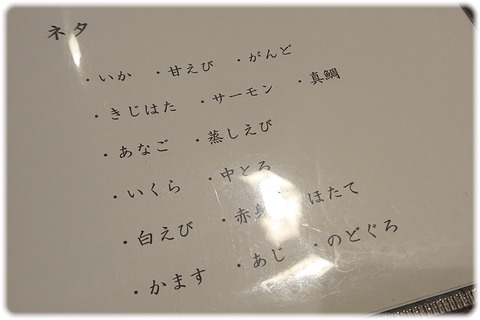 ネタ
・いか ・甘えび ・がんど
・きじはた ・サーモン ・真鯛
・あなご ・蒸しえび
・いくら ・中とろ
・白えび ・赤身 ・ほたて
・かます ・あじ ・のどぐろ